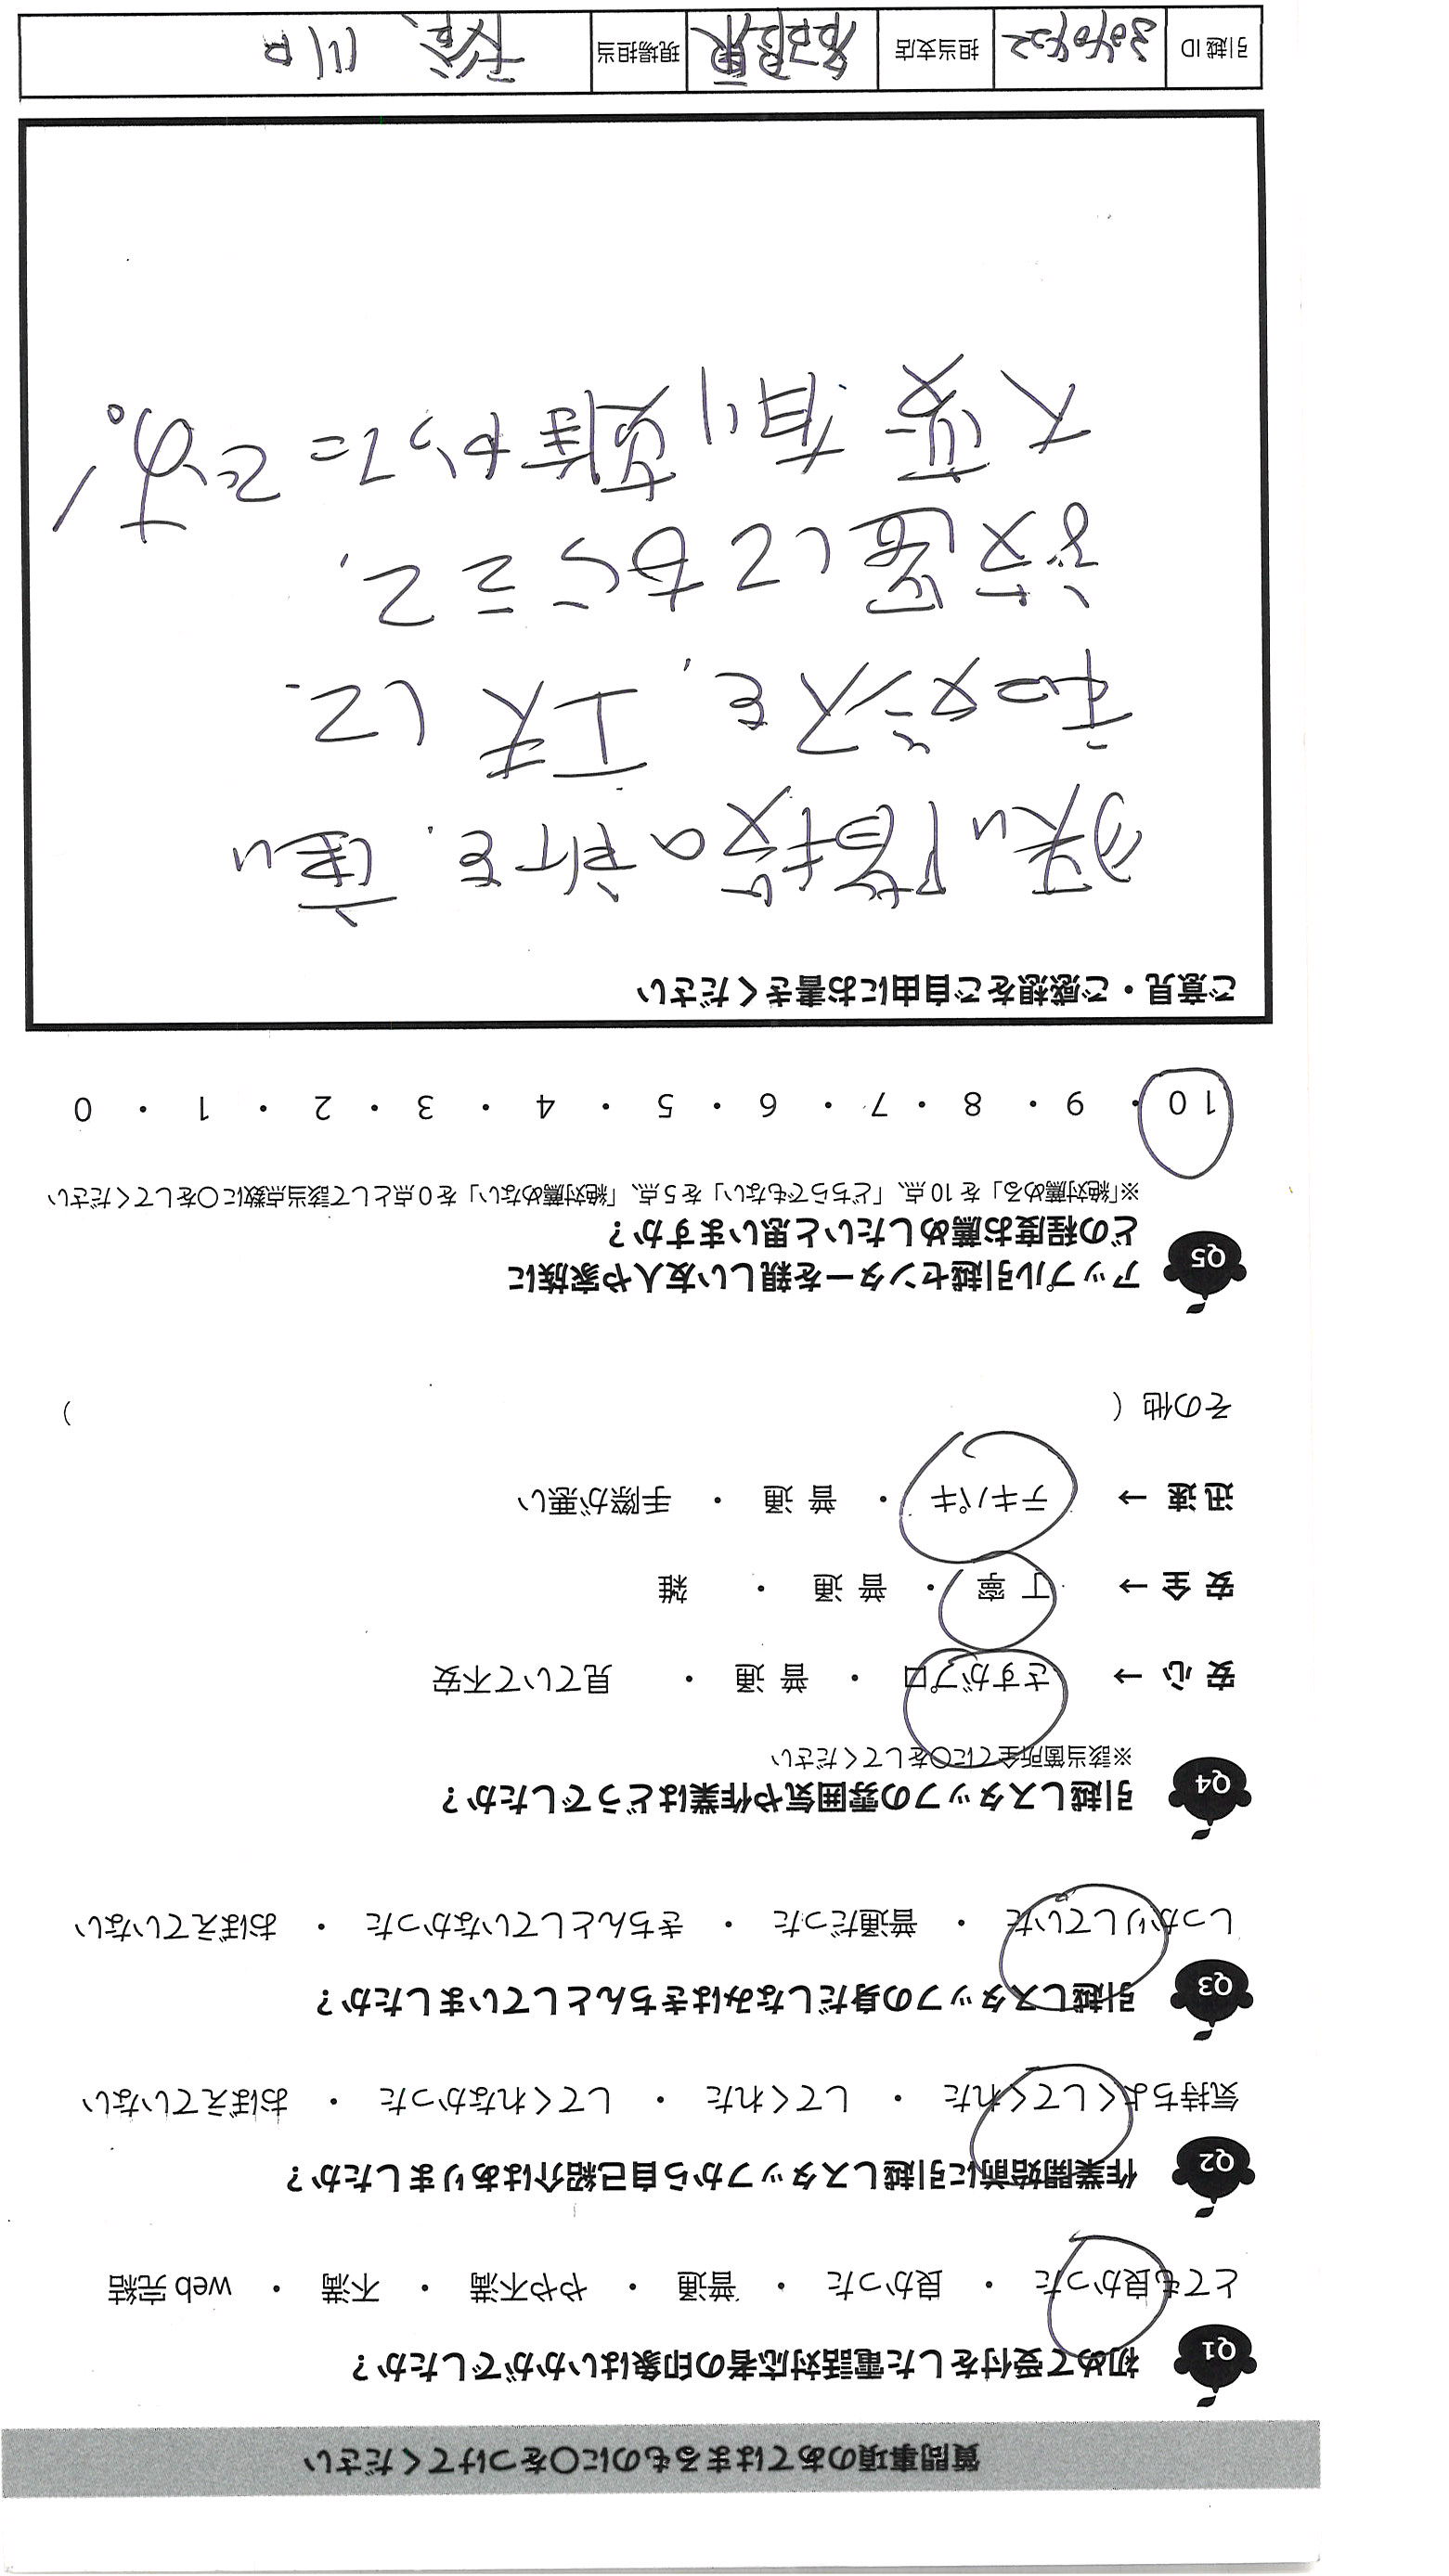 質問事項のあてはまるものに○をつけてください
Q1 初めて受付をした電話対応者の印象はいかがでしたか？
とても良かった ・ 良かった ・ 普通 ・ やや不満 ・ 不満 ・ web 完結
Q2 作業開始前に引越しスタッフから自己紹介はありましたか？
気持ちよくしてくれた ・ してくれた ・ してくれなかった ・ おぼえていない
Q3 引越しスタッフの身だしなみはきちんとしていましたか？
しっかりしていた ・ 普通だった ・ きちんとしていなかった ・ おぼえていない
Q4 引越しスタッフの雰囲気や作業はどうでしたか？
※該当箇所全てに○をしてください
安 心 → さすがプロ ・ 普 通 ・ 見ていて不安
安 全 → 丁 寧 ・ 普 通 ・ 雑
迅 速 → テキパキ ・ 普 通 ・ 手際が悪い
その他（ ）
Q5 アップル引越センターを親しい友人や家族に
どの程度お薦めしたいと思いますか？
※「絶対薦める」を 10 点、「どちらでもない」を 5 点、「絶対薦めない」を 0 点として該当点数に○をしてください
10 ・ 9 ・ 8 ・ 7 ・ 6 ・ 5 ・ 4 ・ 3 ・ 2 ・ 1 ・ 0
ご意見・ご感想をご自由にお書きください
狭い階段の所を、重い
和ダンスを、工夫して、
設置してもらえて、
大変有り難かったです。
引越 ID 担当支店 現場担当 川口